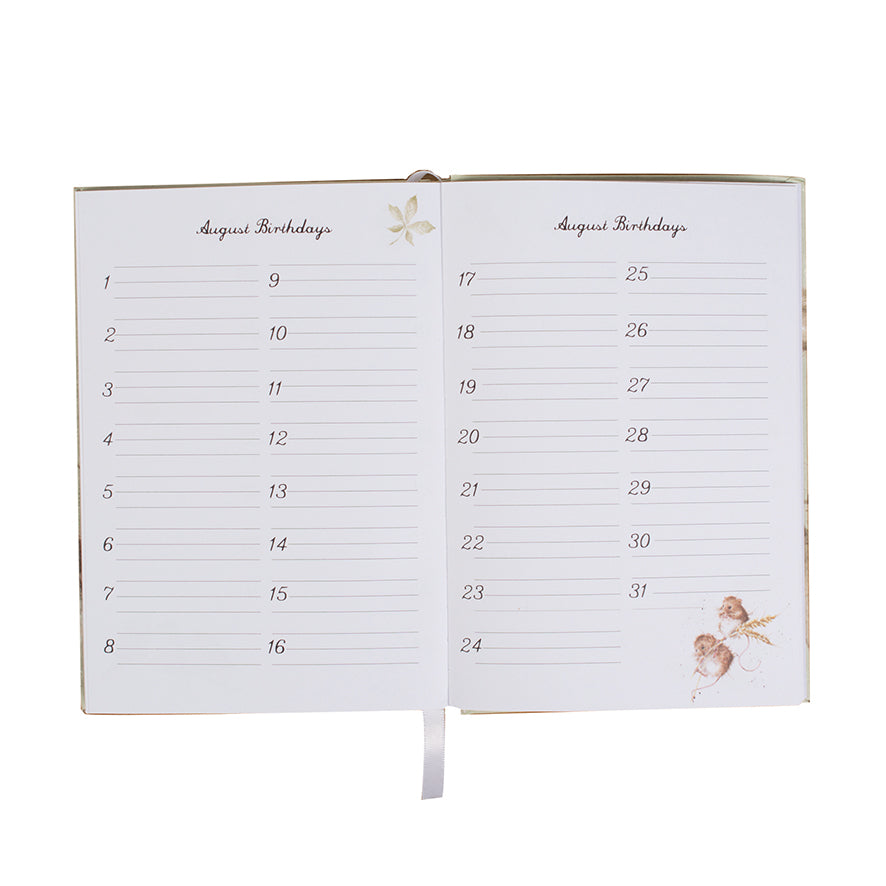 August Birthdays
1
2
3
4
5
6
7
8
9
10
11
12
13
14
15
16
August Birthdays
17
18
19
20
21
22
23
24
25
26
27
28
29
30
31